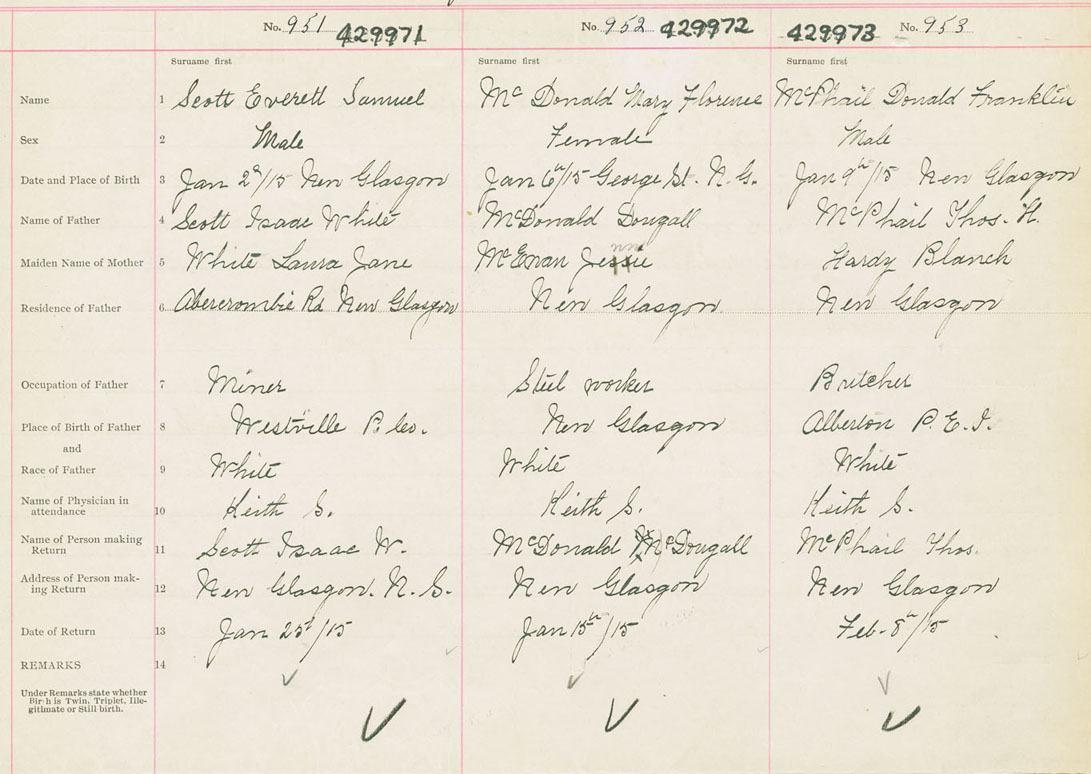 No. 951 429971 No. 952 429972 429973 No. 953
Surname first Surname first Surname first
Name 1 Scott Everett Samuel Mc Donald Mary Florence McPhail Donald Franklin
Sex 2 Male Female Male
Date and Place of Birth 3 Jan 2d/15 New Glasgow Jan 6th/15 George St. N. G. Jan 9th/15 New Glasgow
Name of Father 4 Scott Isaac White McDonald Dougall McPhail Thos. H.
Maiden Name of Mother 5 White Laura Jane McEwan Jessie Hardy Blanch
Residence of Father 6 Abercrombie Rd New Glasgow New Glasgow New Glasgow
Occupation of Father 7 Miner Steel worker Butcher
Place of Birth of Father 8 Westville P. Co. New Glasgow Alberton P. E. I.
and
Race of Father 9 White White White
Name of Physician in
attendance 10 Keith S. Keith S. Keith S.
Name of Person making
Return 11 Scott Isaac W. McDonald McDougall McPhail Thos.
Address of Person mak-
ing Return 12 New Glasgow. N. S. New Glasgow New Glasgow
Date of Return 13 Jan 25t/15 Jan 15th/15 Feb-8th/15
REMARKS 14
Under Remarks state whether
Birth is Twin, Triplet, Ille-
gitimate or Still birth.